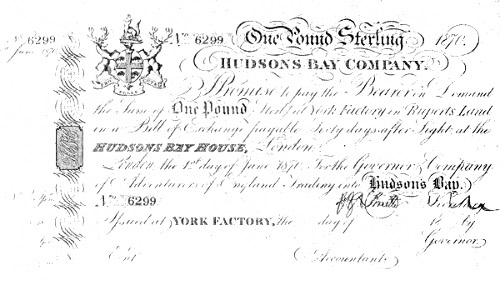 No 6299 No 6299 One Pound Sterling 1870.
June 1870
HUDSONS BAY COMPANY.
I Promise to pay the Bearer on Demand
the Sum of One Pound Sterl.g at York Factory in Ruperts Land
in a Bill of Exchange payable Sixty days after Sight, at the
HUDSONS BAY HOUSE, London.
London the 12th day of June 1870. For the Governor & Company
of Adventurers of England Trading into Hudson's Bay.
No 6299
Issued at YORK FACTORY, the day of 18 by
Governor.
Ent Accountant.